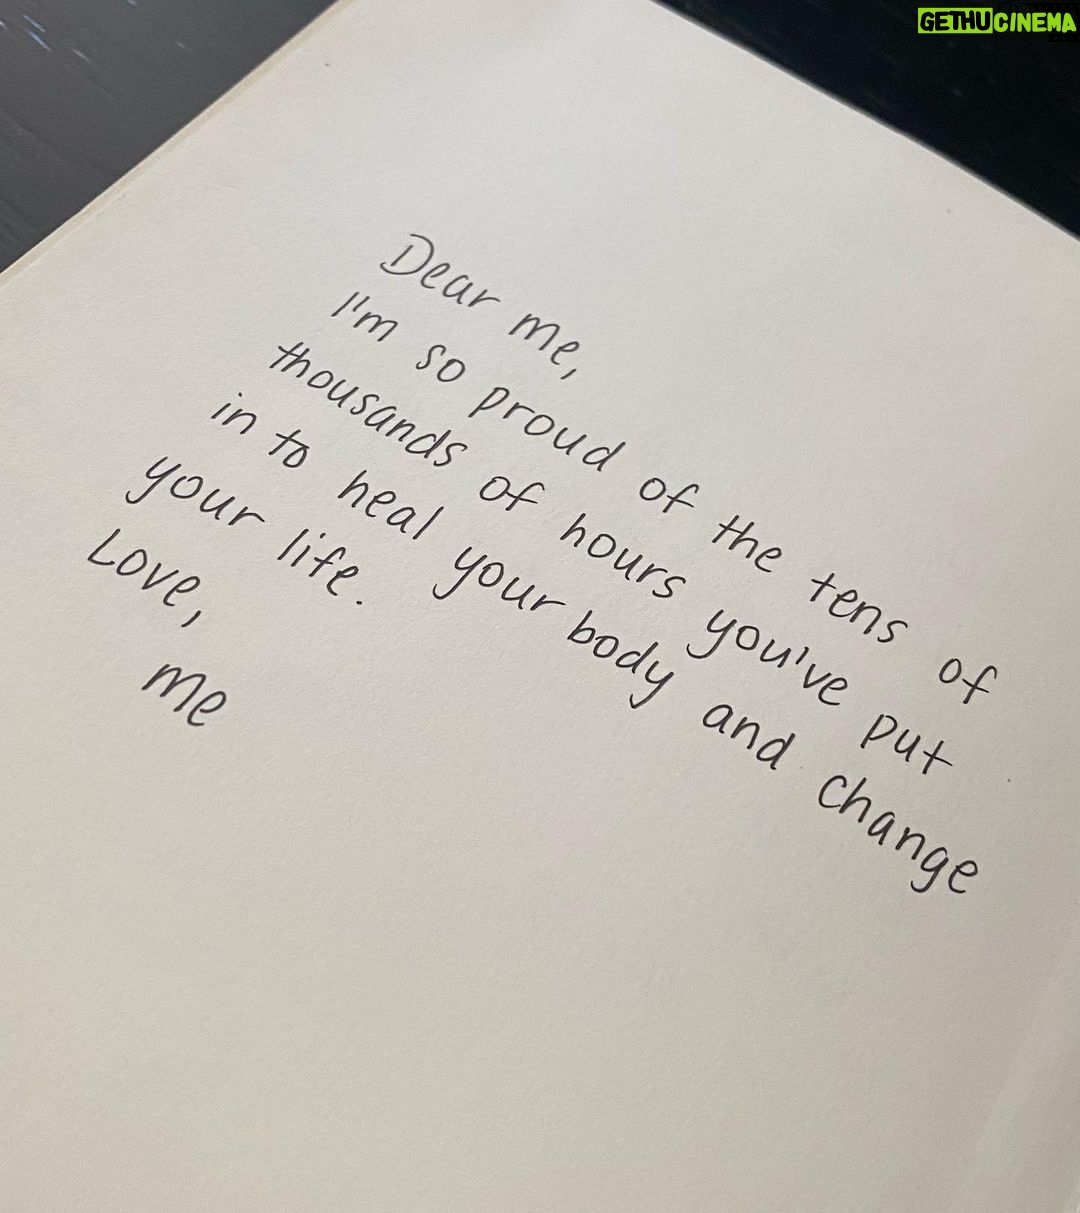 GETHUCINEMA
Dear me,
I'm so proud of the tens of
thousands of hours you've put
in to heal your body and change
your life.
Love,
me